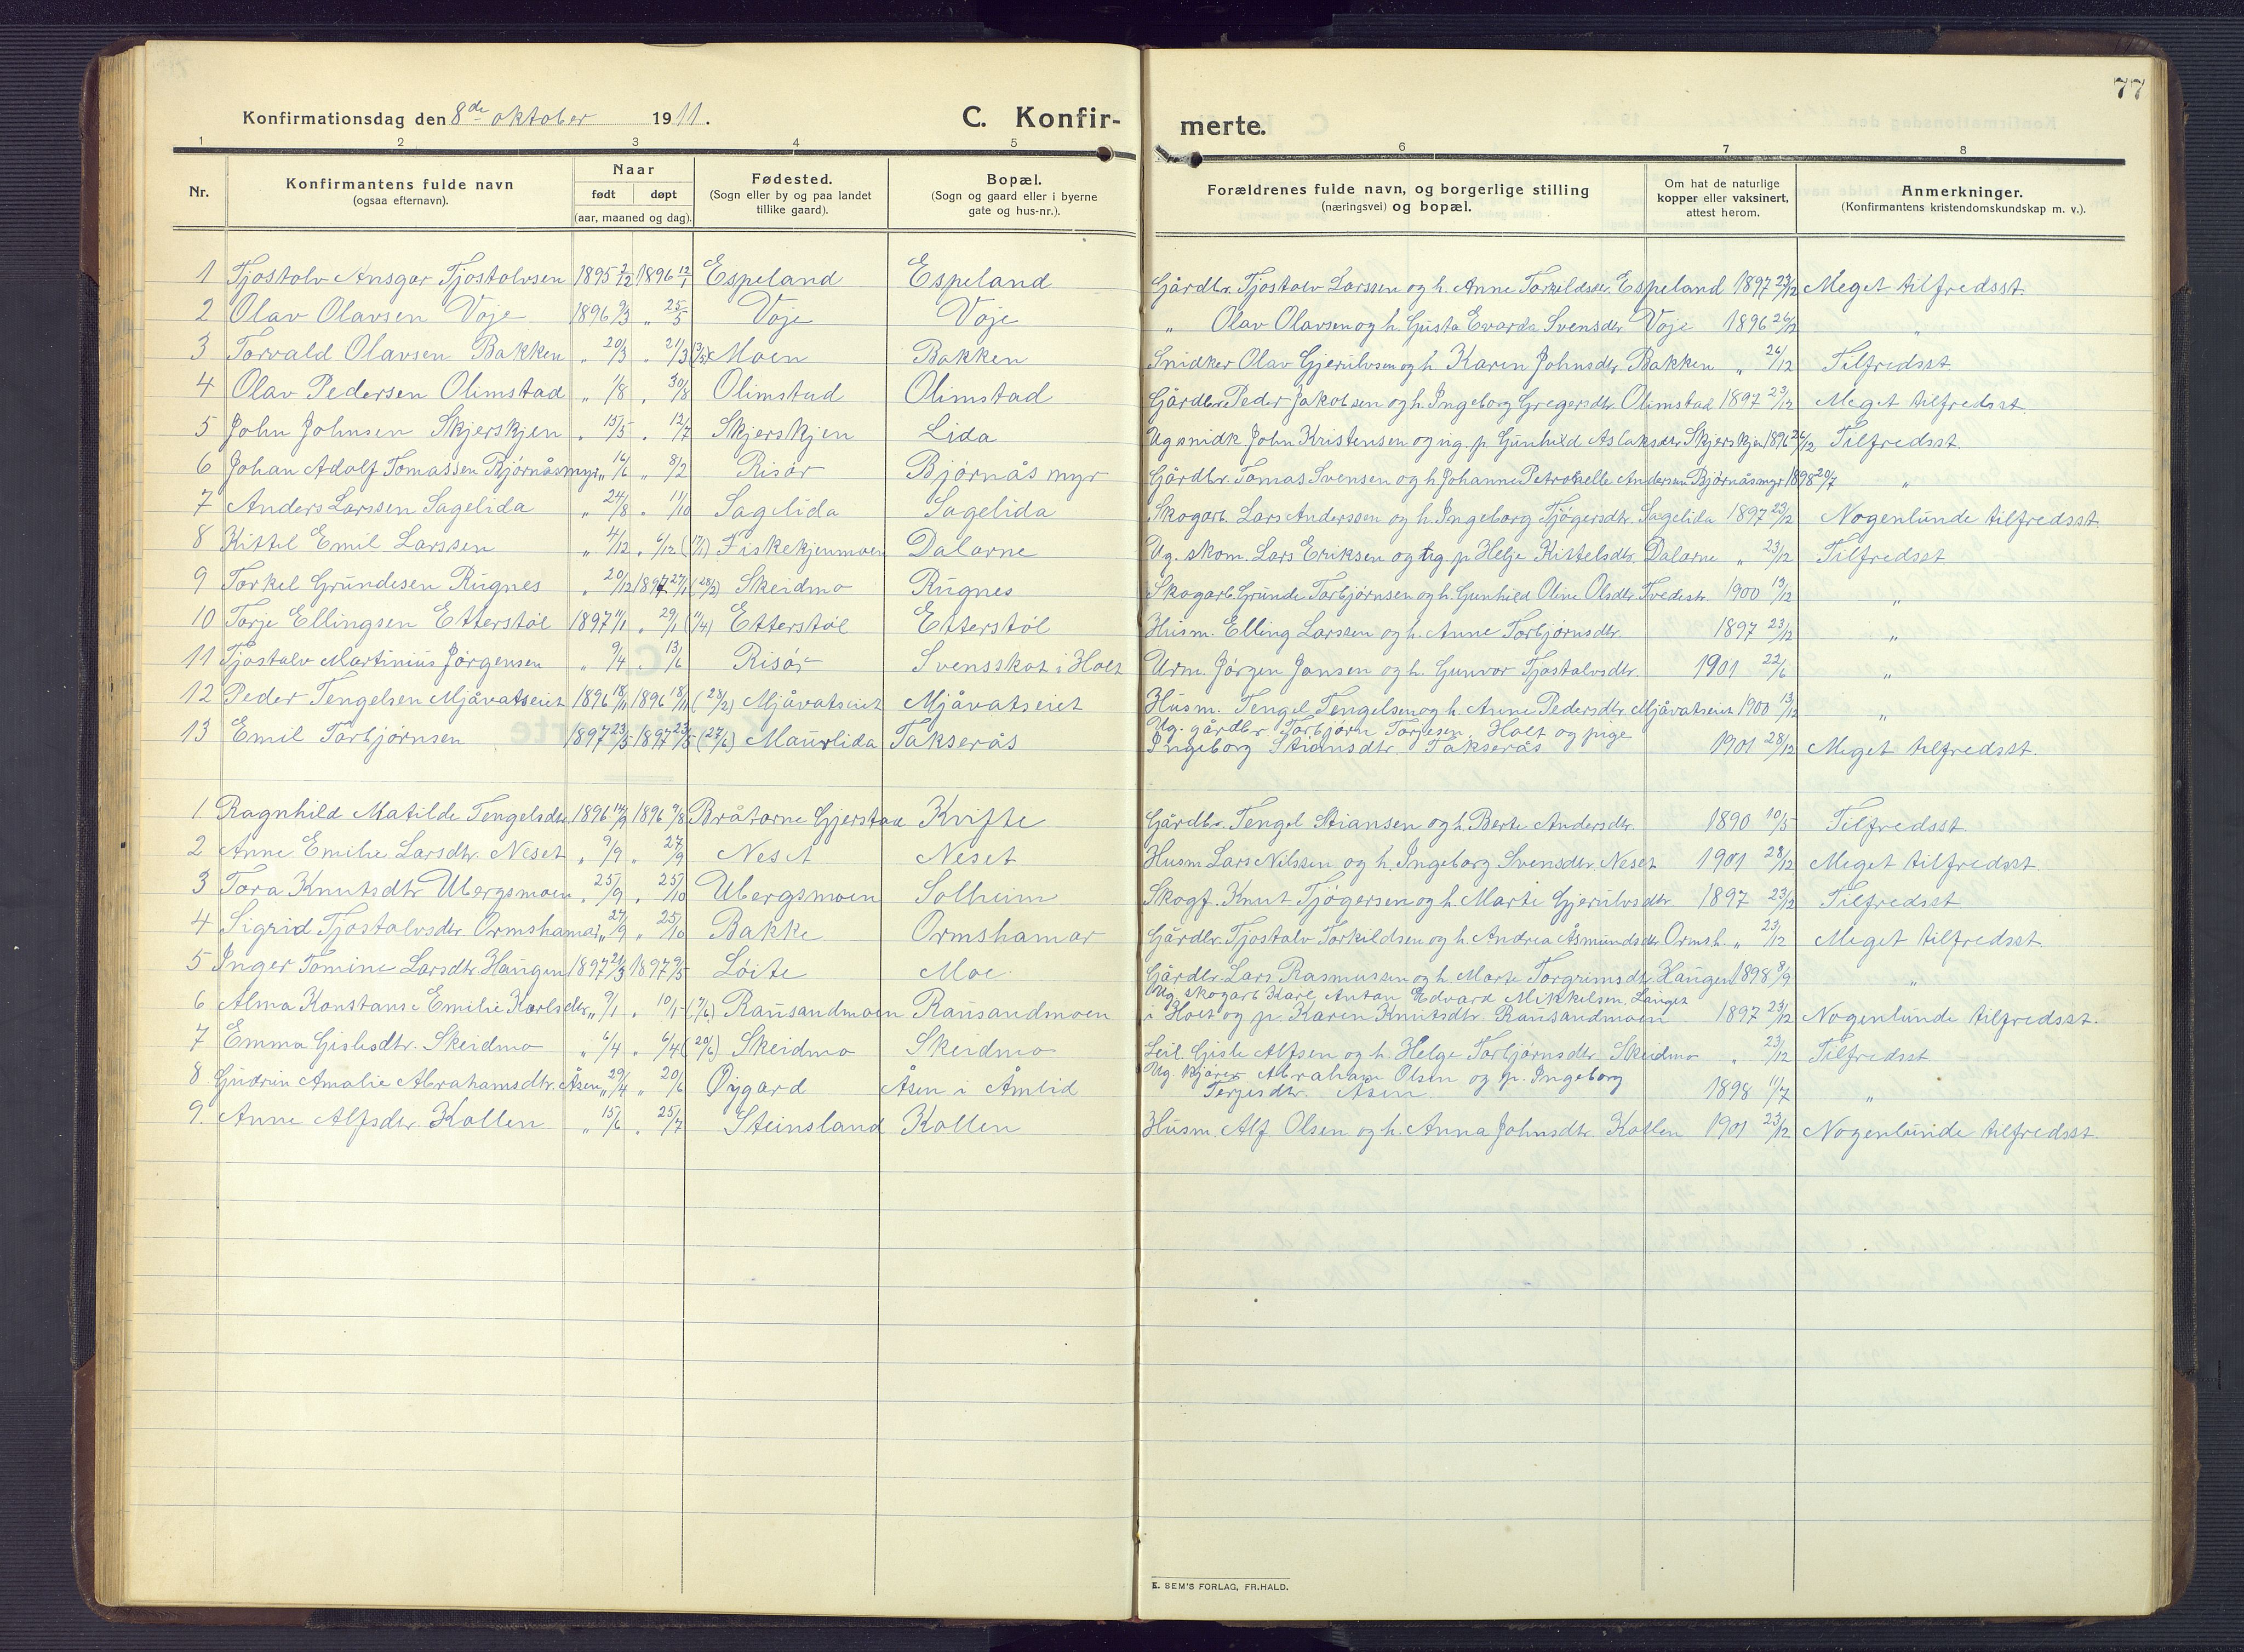 77
Konfirmationsdag den 8de oktober 1911. C. Konfir-
merte.
1 2 3 4 5 6 7 8
Nr. Konfirmantens fulde navn (ogsaa efternavn). Naar født døpt (aar, maaned og dag). Fødested. (Sogn eller by og paa landet tillike gaard). Bopæl. (Sogn og gaard eller i byerne gate og hus-nr.). Forældrenes fulde navn, og borgerlige stilling (næringsvei) og bopæl. Om hat de naturlige kopper eller vaksinert, attest herom. Anmerkninger. (Konfirmantens kristendomskundskap m. v.).
1 Tjostolv Ansgar Tjostolvsen 1895 2/12 1896 12/1 Espeland Espeland Gårdbr. Tjostolv Larssen og h. Anne Torkeldsdr. Espeland 1897 23/12 Meget tilfredsst.
2 Olav Olavsen Voje 1896 9/3 „ 25/5 Voje Voje „ Olav Olavsen og h. Gusta Evarda Svensdtr Voje 1896 26/12 „
3 Torvald Olavsen Bakken „ 20/3 „ 21/3 Moen Bakken Snidker Olav Gjerulvsen og h. Karen Johnsdtr Bakken „ 26/12 Tilfredsst.
4 Olav Pedersen Olimstad „ 1/8 „ 30/8 Olimstad Olimstad Gårdbr. Peder Jakobsen og h. Ingeborg Gregersdtr. Olimstad 1897 23/12 Meget tilfredsst.
5 John Johnsen Skjerskjen „ 15/5 „ 12/7 Skjerskjen Lida Ug snidk John Kristensen og ug. p Gunhild Aslaksdtr Skjerskjen 1896 26/12 Tilfredsst.
6 Johan Adolf Tomassen Bjørnåsmyr „ 16/6 „ 8/2 Risør Bjørnåsmyr Gårdbr. Tomas Svensen og h Johanne Petronelle Andersen Bjørnåsmyr 1898 29/7 „
7 Anders Larssen Sagelida „ 24/8 „ 11/10 Sagelida Sagelida Skogarb. Lars Anderssen og h. Ingeborg Tjøgersdtr. Sagelida 1897 23/12 Nogenlunde tilfredsst.
8 Kittil Emil Larssen „ 4/12 „ 6/12 (17/1) Fiskekjenmoen Dalarne Ug. skom. Lars Eriksen og ug. p Helje Kittelsdtr. Dalarne „ 23/12 Tilfredsst
9 Torkel Grundesen Rugnes „ 20/12 1897 27/1 (28/2) Skeidmo Rugnes Skogarb Grunde Torbjørnsen og h. Gunhild Oline Olsdtr. Tvedestr. 1900 13/12 „
10 Torje Ellingsen Etterstøl 1897 14/1 „ 29/1 (11/4) Etterstøl Etterstøl Husm. Elling Larssen og h. Anne Torbjørnsdtr. 1897 23/12 „
11 Tjostolv Martinius Jørgensen „ 9/4 „ 13/6 Risør Svensskot i Holt Urm. Jørgen Jansen og h. Gunvor Tjostolvsdtr. 1901 22/6 „
12 Peder Tengelsen Mjåvatseiet 1896 18/11 1896 18/11 (28/2) Mjåvatseiet Mjåvatseiet Husm. Tengel Tengelsen og h. Anne Pedersdtr. Mjåvatseiet 1900 13/12 „
13 Emil Torbjørnsen 1897 23/5 1897 23/5 (27/6) Maurlida Takserås Ug. gårdbr. Torbjørn Torjesen, Holt og pige
Ingeborg Stiansdtr. Takserås 1901 28/12 Meget tilfredsst.
1 Ragnhild Matilde Tengelsdtr. 1896 14/9 1896 9/8 Bråtorne Gjerstad Kvifte Gårdbr. Tengel Stiansen og h. Berte Andersdtr. 1890 10/5 Tilfredsst
2 Anne Emilie Larsdtr. Neset „ 9/9 „ 27/9 Neset Neset Husm Lars Nilssen og h. Ingeborg Svensdtr Neset 1901 28/12 Meget tilfredsst.
3 Tora Knutsdtr Ubergsmoen „ 25/9 „ 25/10 Ubergsmoen Solheim Skogf. Knut Tjøgersen og h. Marte Gjerulvsdtr 1897 23/12 Tilfredsst
4 Sigrid Tjostolvsdtr. Ormshamar „ 27/9 „ 25/10 Bakke Ormshamar Gårdbr. Tjostolv Torkildsen og h. Andrea Åsmundsdtr Ormsh. „ 23/12 Meget tilfredsst.
5 Inger Tomine Larsdtr Haugen 1897 21/3 1897 9/5 Løite Moe Gårdbr. Lars Rasmussen og h. Marte Torgrimsdtr Haugen 1898 8/9 „
6 Alma Konstanse Emilie Karlsdtr. „ 9/1 „ 10/1 (7/6) Rausandmoen Rausandmoen Ug. skogarb Karl Anton Edvard Mikkelsen,
i Holt og p. Karen Knutsdtr. Rausandmoen 1897 23/12 Nogenlunde tilfredsst.
7 Emma Gislesdtr. Skeidmo „ 6/4 „ 6/4 (20/6) Skeidmo Skeidmo Leil. Gisle Alfsen og h. Helge Torbjørnsdtr. Skeidmo „ 23/12 Tilfredsst
8 Gudrun Amalie Abrahamsdtr. Åsen „ 29/4 „ 20/6 Øygard Åsen i Åmlid Ug. kjører Abraham Olsen og p. Ingeborg
Terjesdtr. Åsen 1898 11/7 „
9. Anne Alfsdtr Kollen „ 15/6 „ 25/7 Steinsland Kollen Husm. Alf Olsen og h. Anna Johnsdtr Kollen 1901 23/12 Nogenlunde tilfredsst.
E. SEM'S FORLAG, FR.HALD.